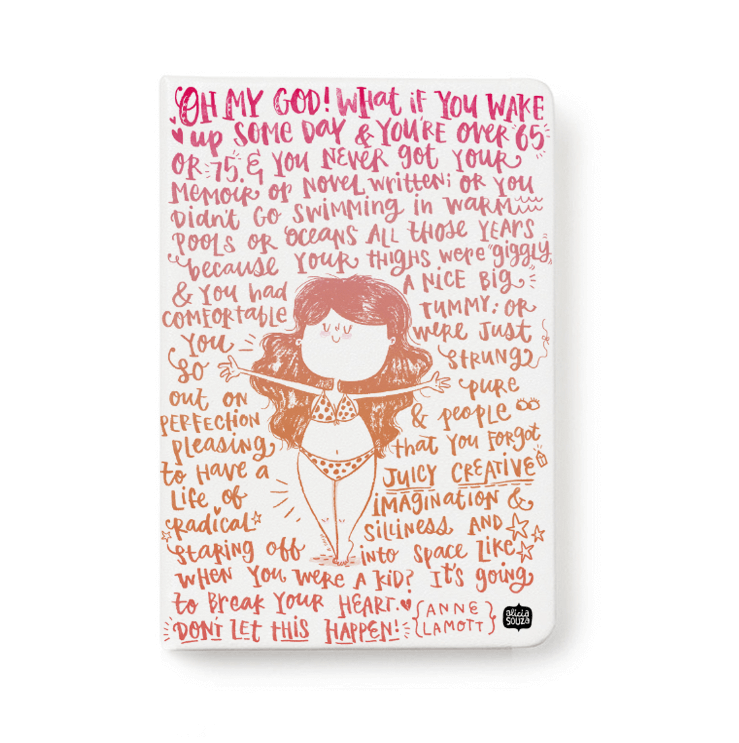 OH MY GOD! WHAT IF YOU WAKE
UP SOME DAY & YOU'RE OVER 65
OR 75, & YOU NEVER GOT YOUR
MEMOIR OR NOVEL WRITTEN; OR YOU
DIDN'T GO SWIMMING IN WARM
POOLS OR OCEANS ALL THOSE YEARS
BECAUSE YOUR THIGHS WERE "GIGGLY
& YOU HAD A NICE BIG
COMFORTABLE TUMMY; OR
YOU WERE JUST
SO STRUNG
OUT ON PURE
PERFECTION & PEOPLE
PLEASING THAT YOU FORGOT
TO HAVE A JUICY CREATIVE
LIFE OF IMAGINATION &
RADICAL SILLINESS AND
STARING OFF INTO SPACE LIKE
WHEN YOU WERE A KID? IT'S GOING
TO BREAK YOUR HEART. {ANNE
DON'T LET THIS HAPPEN! LAMOTT}
alicia
souza